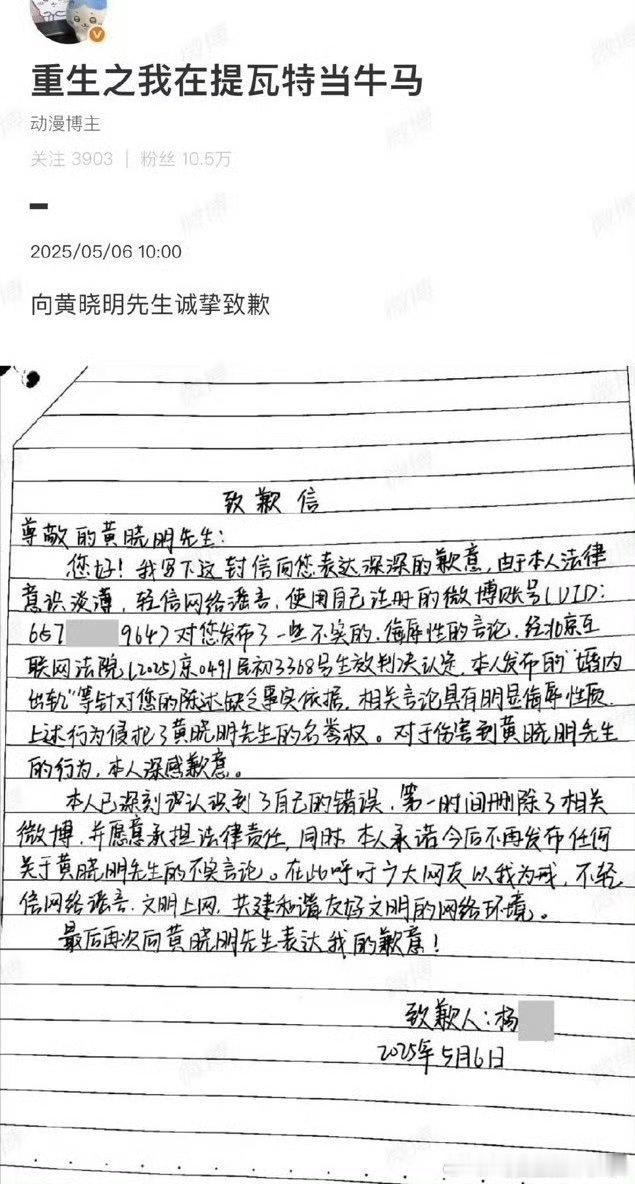 重生之我在提瓦特当牛马
动漫博主
关注 3903 | 粉丝 10.5万
2025/05/06 10:00
向黄晓明先生诚挚致歉
致歉信
尊敬的黄晓明先生:
您好!我写下这封信向您表达深深的歉意,由于本人法律
意识淡薄,轻信网络谣言,使用自己注册的微博账号(UID:
657 9647对您发布了一些不实的,侮辱性的言论,经北京互
联网法院(2025)京0491民初3368号生效判决认定,本人发布的“婚内
出轨”等针对您的陈述缺乏事实依据,相关言论具有明显侮辱性质,
上述行为侵犯了黄晓明先生的名誉权。对于伤害到黄晓明先生
的行为,本人深感歉意。
本人已深刻认识到了自己的错误,第一时间删除了相关
微博,并愿意承担法律责任,同时,本人承诺今后不再发布任何
关于黄晓明先生的不实言论。在此呼吁广大网友以我为戒,不轻
信网络谣言,文明上网,共建和谐友好文明的网络环境。
最后再次向黄晓明先生表达我的歉意!
致歉人:杨
2025年5月6日
微博